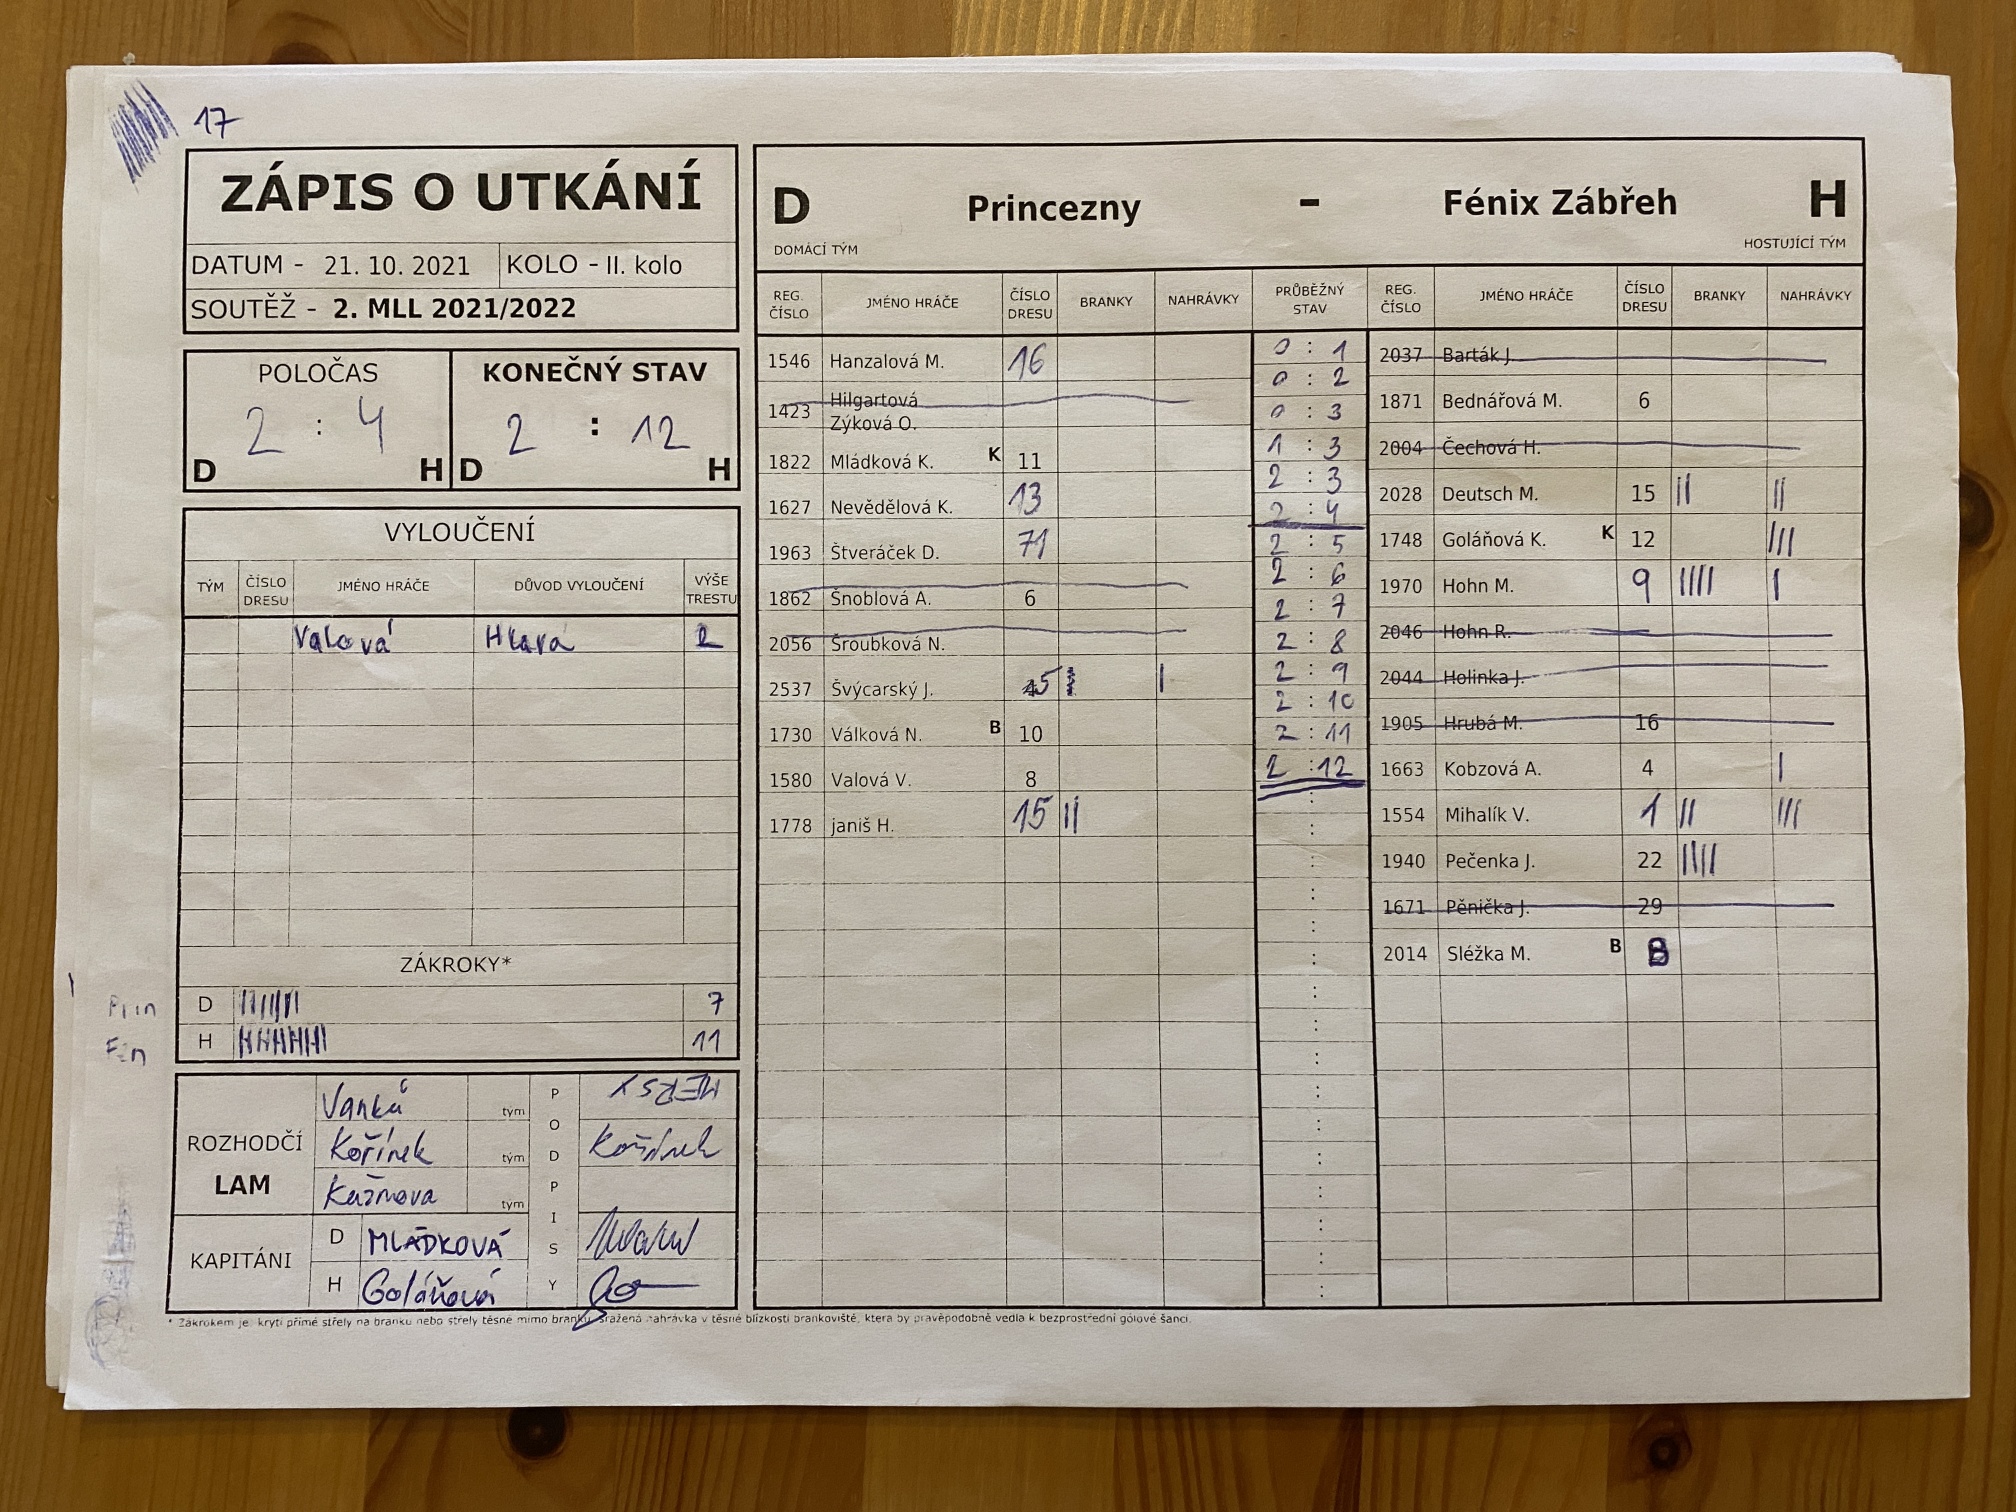 17
ZÁPIS O UTKÁNÍ
DATUM - 21. 10. 2021 KOLO - II. kolo
SOUTĚŽ - 2. MLL 2021/2022
POLOČAS
2 : 4
D H
KONEČNÝ STAV
2 : 12
D H
VYLOUČENÍ
TÝM ČÍSLO DRESU JMÉNO HRÁČE DŮVOD VYLOUČENÍ VÝŠE TRESTU
Valová Hlava 2
ZÁKROKY*
Prin D 7
Fen H 11
ROZHODČÍ
LAM
Vanká tým
Kořínek tým Kořínek
Kaznova tým
PODPISY
KAPITÁNI
D MLÁDKOVÁ
H Goláňová
* Zákrokem je: krytí přímé střely na branku nebo střely těsně mimo branku, sražená nahrávka v těsné blízkosti brankoviště, která by pravěpodobně vedla k bezprostřední gólové šanci.
D Princezny - Fénix Zábřeh H
DOMÁCÍ TÝM HOSTUJÍCÍ TÝM
REG. ČÍSLO JMÉNO HRÁČE ČÍSLO DRESU BRANKY NAHRÁVKY
1546 Hanzalová M. 16
1423 Hilgartová
Zýková O.
1822 Mládková K. K 11
1627 Nevědělová K. 13
1963 Štveráček D. 71
1862 Šnoblová A. 6
2056 Šroubková N.
2537 Švýcarský J. 5 |
1730 Válková N. B 10
1580 Valová V. 8
1778 janiš H. 15 ||
PRŮBĚŽNÝ STAV
0 : 1
0 : 2
0 : 3
1 : 3
2 : 3
2 : 4
2 : 5
2 : 6
2 : 7
2 : 8
2 : 9
2 : 10
2 : 11
2 : 12
REG. ČÍSLO JMÉNO HRÁČE ČÍSLO DRESU BRANKY NAHRÁVKY
2037 Barták J.
1871 Bednářová M. 6
2004 Čechová H.
2028 Deutsch M. 15 || ||
1748 Goláňová K. K 12 |||
1970 Hohn M. 9 |||| |
2046 Hohn R.
2044 Holinka J.
1905 Hrubá M. 16
1663 Kobzová A. 4 |
1554 Mihalík V. 1 || |||
1940 Pečenka J. 22 ||||
1671 Pěnička J. 29
2014 Sléžka M. B